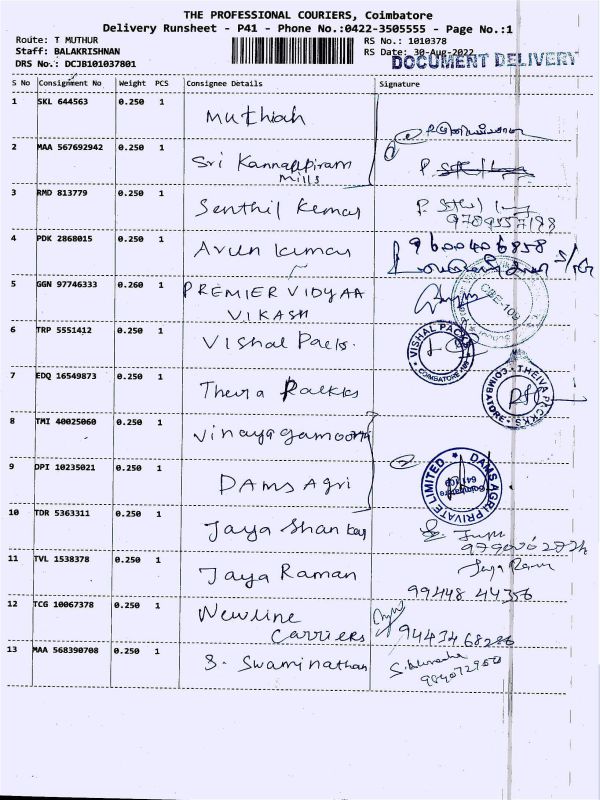 THE PROFESSIONAL COURIERS, Coimbatore
Delivery Runsheet - P41 - Phone No.:0422-3505555 - Page No.:1
Route: T MUTHUR
RS No.: 1010378
Staff: BALAKRISHNAN
RS Date: 30-Aug-2022
DRS No.: DCJB101037801
DOCUMENT DELIVERY
S No Consignment No Weight PCS Consignee Details Signature
1 SKL 644563 0.250 1 Muthiah
2 MAA 567692942 0.250 1 Sri Kannappiram
Mills
3 RMD 813779 0.250 1 Senthil Kumar
4 PDK 2868015 0.250 1 Arun kumar 9600406858
5 GGN 97746333 0.260 1 PREMIER VIDYAA
VIKASH
CBE-109
6 TRP 5551412 0.250 1 Vishal Packs.
VISHAL PACKS
COIMBATORE
7 EDQ 16549873 0.250 1 Theiva Packks
THEIVA PACKKS
COIMBATORE
8 TMI 40025060 0.250 1 Vinayagamoorth
9 DPI 10235021 0.250 1 DAMS Agri
DAMS AGRI PRIVATE LIMITED
Coimbatore
10 TDR 5363311 0.250 1 Jaya Shankar
11 TVL 1538378 0.250 1 Jaya Raman Jaya Raman
99448 44356
12 TCG 10067378 0.250 1 Newline
Carriers
13 MAA 568390708 0.250 1 S. Swaminathan